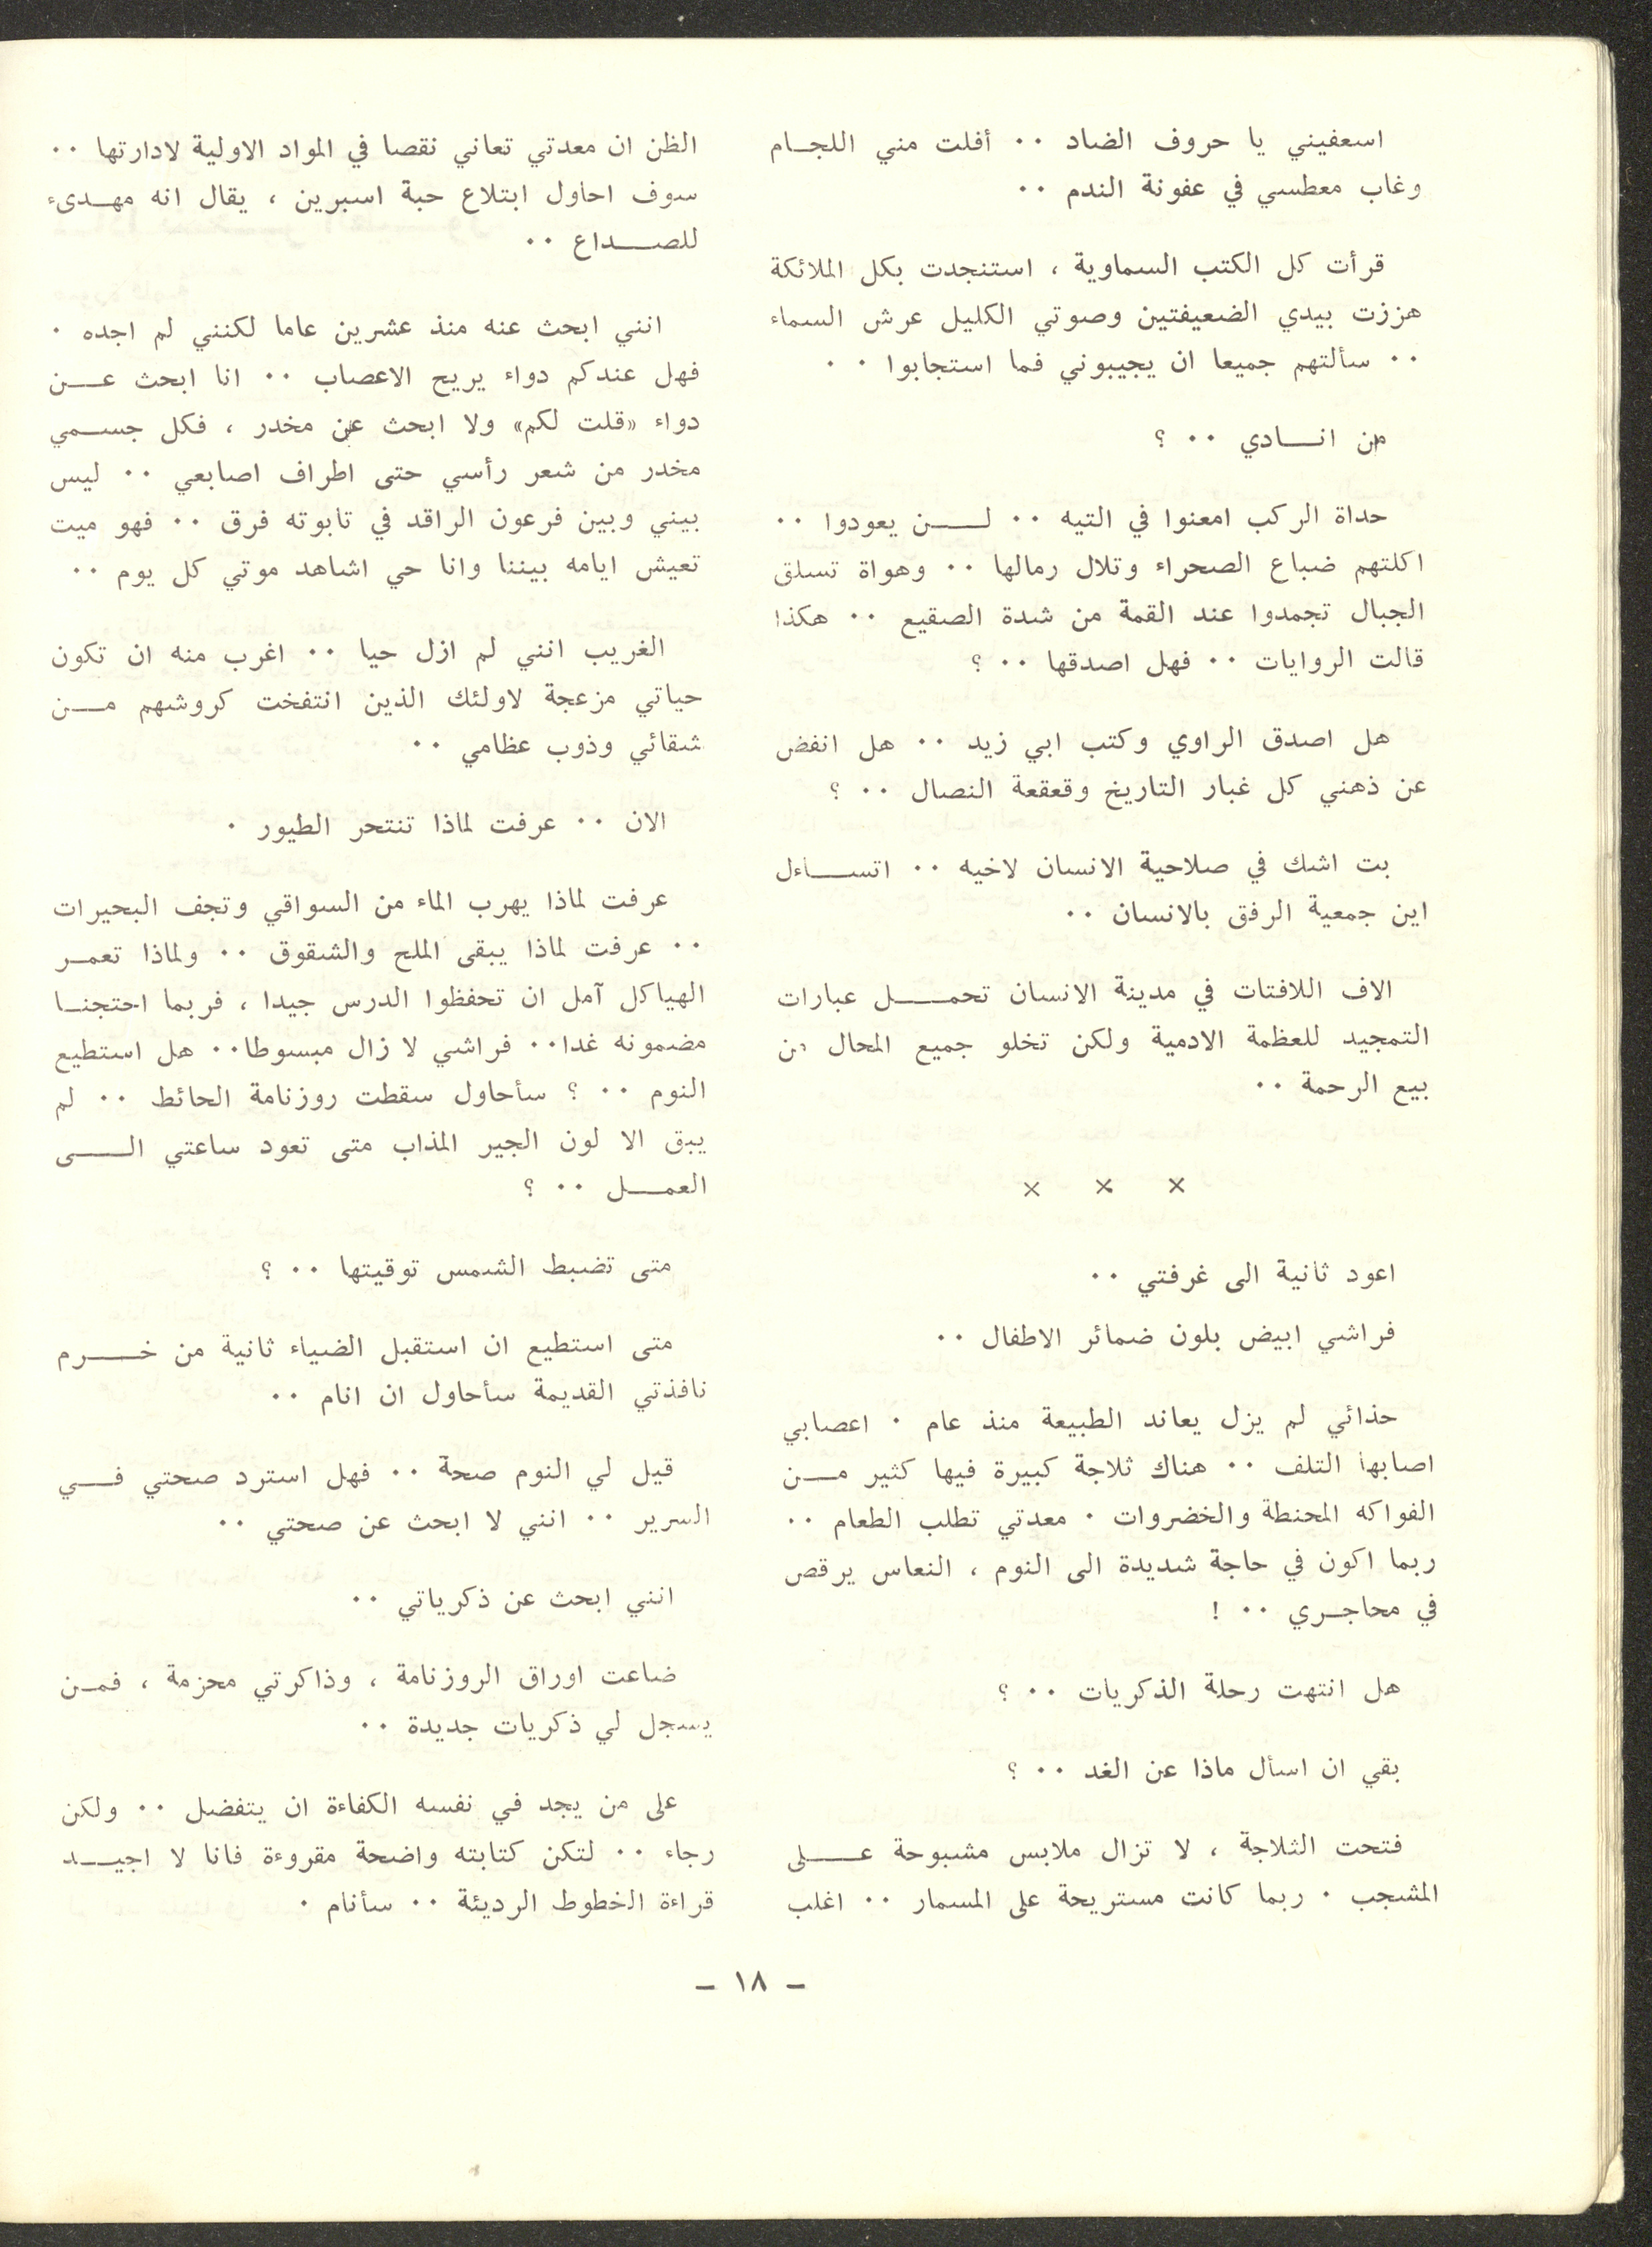 اسعفيني يا حروف الضاد ٠٠ أفلت مني اللجام
وغاب معطسي في عفونة الندم ٠٠
قرأت كل الكتب السماوية ، استنجدت بكل الملائكة
هززت بيدي الضعيفتين وصوتي الكليل عرش السماء
٠٠ سألتهم جميعا ان يجيبوني فما استجابوا ٠٠
من انادي ٠٠ ؟
حداة الركب امعنوا في التيه ٠٠ لن يعودوا ٠٠
اكلتهم ضباع الصحراء وتلال رمالها ٠٠ وهواة تسلق
الجبال تجمدوا عند القمة من شدة الصقيع ٠٠ هكذا
قالت الروايات ٠٠ فهل اصدقها ٠٠ ؟
هل اصدق الراوي وكتب ابي زيد ٠٠ هل انفض
عن ذهني كل غبار التاريخ وقعقعة النصال ٠٠ ؟
بت اشك في صلاحية الانسان لاخيه ٠٠ اتساءل
اين جمعية الرفق بالانسان ٠٠
الاف اللافتات في مدينة الانسان تحمل عبارات
التمجيد للعظمة الادمية ولكن تخلو جميع المحال من
بيع الرحمة ٠٠
× × ×
اعود ثانية الى غرفتي ٠٠
فراشي ابيض بلون ضمائر الاطفال ٠٠
حذائي لم يزل يعاند الطبيعة منذ عام ٠ اعصابي
اصابها التلف ٠٠ هناك ثلاجة كبيرة فيها كثير من
الفواكه المحنطة والخضروات ٠ معدتي تطلب الطعام ٠٠
ربما اكون في حاجة شديدة الى النوم ، النعاس يرقص
في محاجري ٠٠ !
هل انتهت رحلة الذكريات ٠٠ ؟
بقي ان اسأل ماذا عن الغد ٠٠ ؟
فتحت الثلاجة ، لا تزال ملابس مشبوحة على
المشجب ٠ ربما كانت مستريحة على المسمار ٠٠ اغلب
الظن ان معدتي تعاني نقصا في المواد الاولية لادارتها ٠٠
سوف احاول ابتلاع حبة اسبرين ، يقال انه مهدىء
للصداع ٠٠
انني ابحث عنه منذ عشرين عاما لكنني لم اجده ٠
فهل عندكم دواء يريح الاعصاب ٠٠ انا ابحث عن
دواء «قلت لكم» ولا ابحث عن مخدر ، فكل جسمي
مخدر من شعر رأسي حتى اطراف اصابعي ٠٠ ليس
بيني وبين فرعون الراقد في تابوته فرق ٠٠ فهو ميت
تعيش ايامه بيننا وانا حي اشاهد موتي كل يوم ٠٠
الغريب انني لم ازل حيا ٠٠ اغرب منه ان تكون
حياتي مزعجة لاولئك الذين انتفخت كروشهم من
شقائي وذوب عظامي ٠٠
الان ٠٠ عرفت لماذا تنتحر الطيور ٠
عرفت لماذا يهرب الماء من السواقي وتجف البحيرات
٠٠ عرفت لماذا يبقى الملح والشقوق ٠٠ ولماذا تعمر
الهياكل آمل ان تحفظوا الدرس جيدا ، فربما احتجنا
مضمونه غدا٠٠ فراشي لا زال مبسوطا٠٠ هل استطيع
النوم ٠٠ ؟ سأحاول سقطت روزنامة الحائط ٠٠ لم
يبق الا لون الجير المذاب متى تعود ساعتي الى
العمل ٠٠ ؟
متى تضبط الشمس توقيتها ٠٠ ؟
متى استطيع ان استقبل الضياء ثانية من خرم
نافذتي القديمة سأحاول ان انام ٠٠
قيل لي النوم صحة ٠٠ فهل استرد صحتي في
السرير ٠٠ انني لا ابحث عن صحتي ٠٠
انني ابحث عن ذكرياتي ٠٠
ضاعت اوراق الروزنامة ، وذاكرتي محزمة ، فمن
يسجل لي ذكريات جديدة ٠٠
على من يجد في نفسه الكفاءة ان يتفضل ٠٠ ولكن
رجاء ٠٠ لتكن كتابته واضحة مقروءة فانا لا اجيد
قراءة الخطوط الرديئة ٠٠ سأنام ٠
– ١٨ –